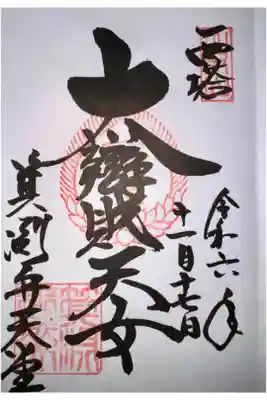 西塔
令和六年
十一月十七日
大辯財天女
箕渕弁天堂